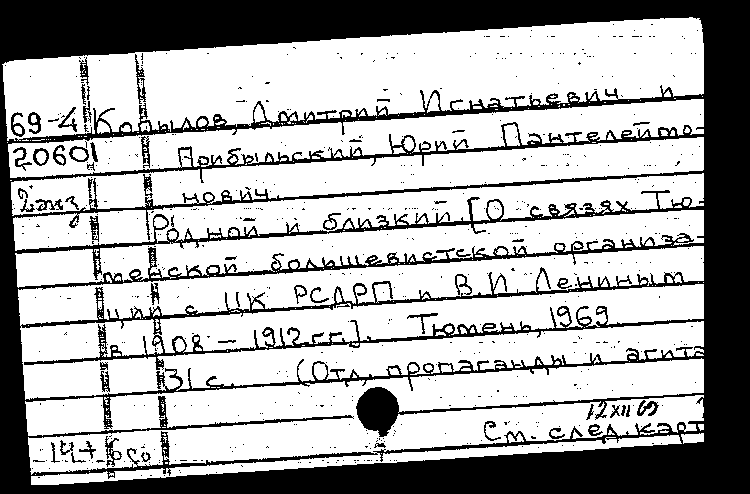 69-4 Копылов, Дмитрий Игнатьевич и
20601 Прибыльский, Юрий Пантелеймо-
2 экз нович.
Родной и близкий. [О связях Тю-
менской большевистской организа-
ции с ЦК РСДРП и В.И. Лениным
в 1908 – 1912 гг.]. Тюмень, 1969.
31 с. (Отд. пропаганды и агита
12 XII 69
См. след. карт